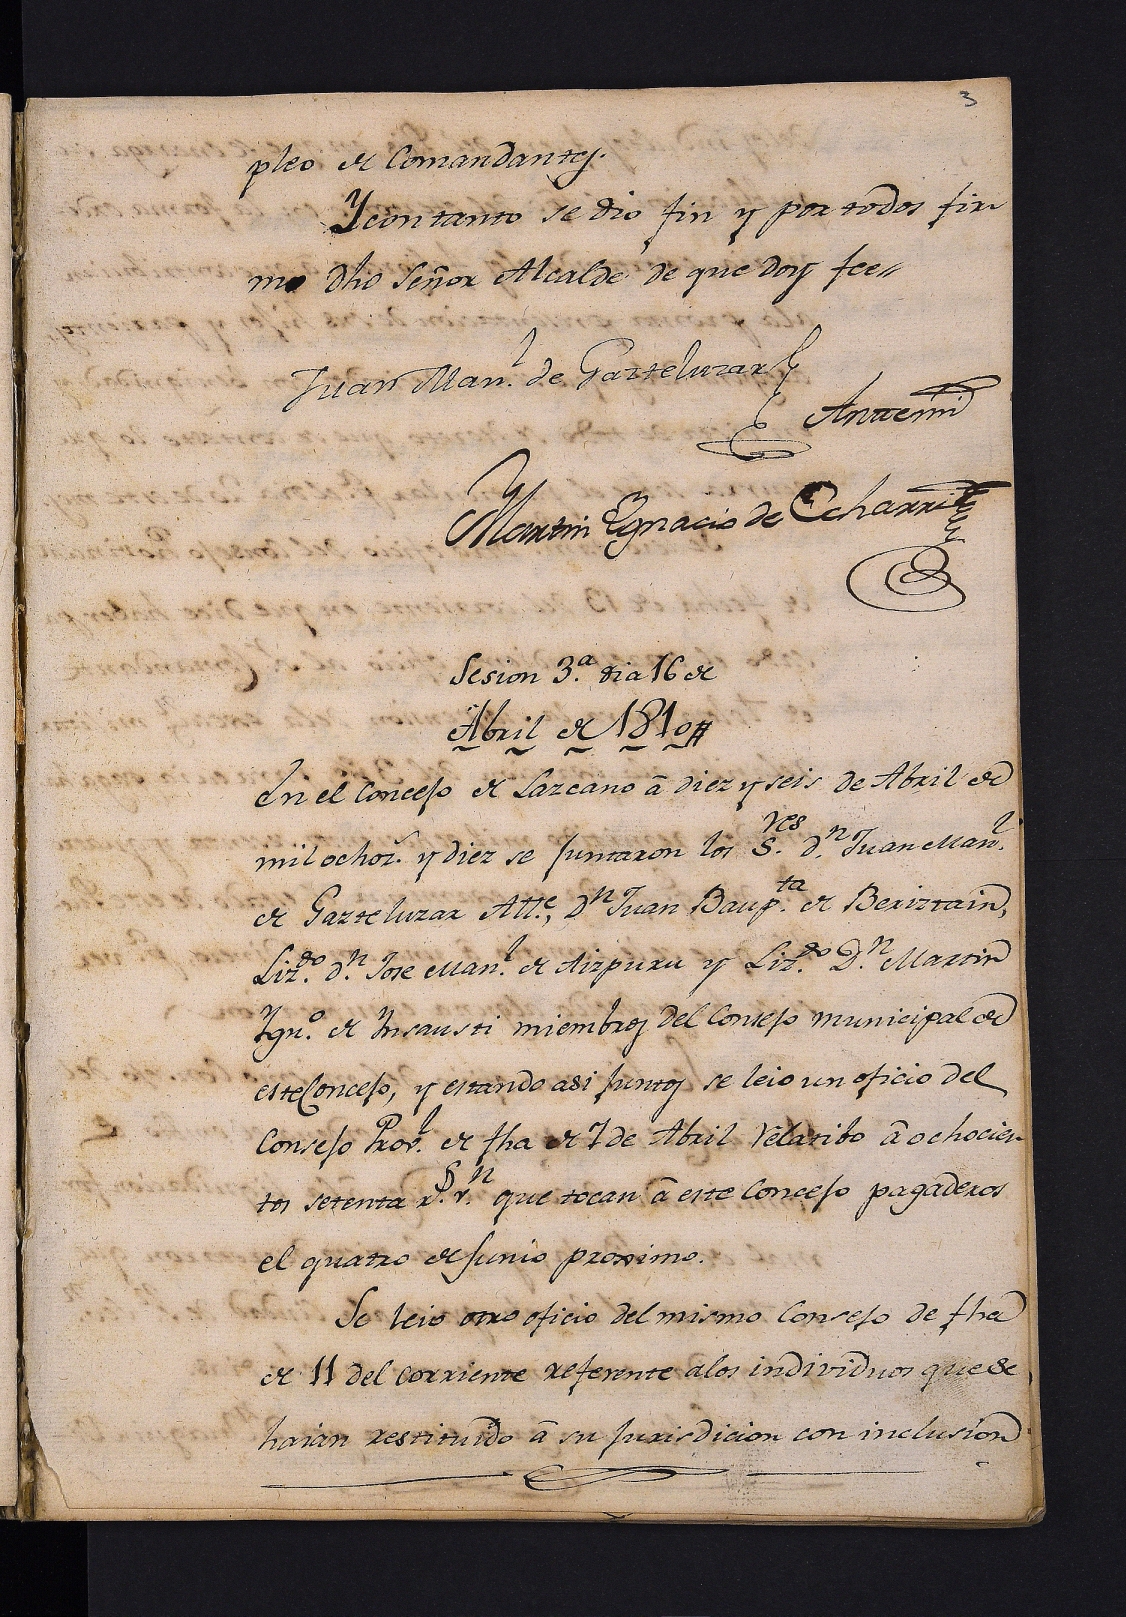 3
pleo de Comandantes.
Y con tanto se dio fin y por todos fir-
mo dho Señor Alcalde de que doy fee//
Juan Man.l de Gazteluzar
Antemi
Martin Ygnacio de Echarri
Sesion 3.a dia 16 de
Abril de 1810//
En el Concejo de Lazcano â diez y seis de Abril de
mil ochoz.s y diez se juntaron los S.res d.n Juan Man.l
de Gazteluzar Alt.e, D.n Juan Baup.ta de Beriztain,
Liz.do d.n Jose Man.l de Aizpuru y Liz.do D.n Martin
Ygn.o de Ynsausti miembros del Consejo municipal de
este Concejo, y estando asi juntos se leio un oficio del
Consejo Prov.l de fha de 7 de Abril relatibo â ochocien-
tos setenta r.s v.n que tocan â este Concejo pagaderos
el quatro de Junio proximo.
Se leio otro oficio del mismo Consejo de fha
de 11 del corriente referente alos individuos que se
haian restituido â su jurisdicion con inclusion